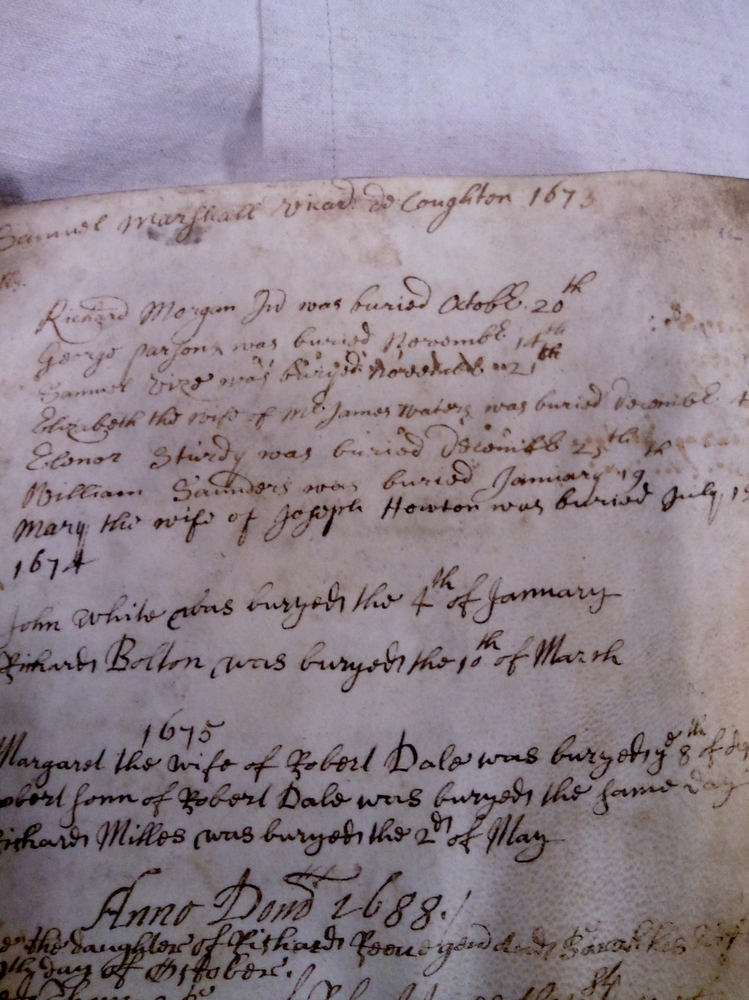 Samuel Marshall vicar de Coughton 1673
Richard Morgan was buried Octobr. 20th
George parsons was buried Novembr. 14th
Samuel Vize was buryed Novembr 21th
Elizabeth the wife of Mr. James Waters was buried Decembr.
Elenor Sturdy was buried Decembr 25th
William Saunders was buried January 19th
Mary the wife of Joseph Howton was buried July
1674
John White was buryed the 4th of January
Richard Bolton was buryed the 10th of March
1675
Margaret the wife of Robert Dale was buryed ye 8th of
obert sonn of Robert Dale was buryed the same day
Richard Milles was buryed the 2d of May
Anno Dond 1688.
the daughter of Richard Reeve and
day of October.